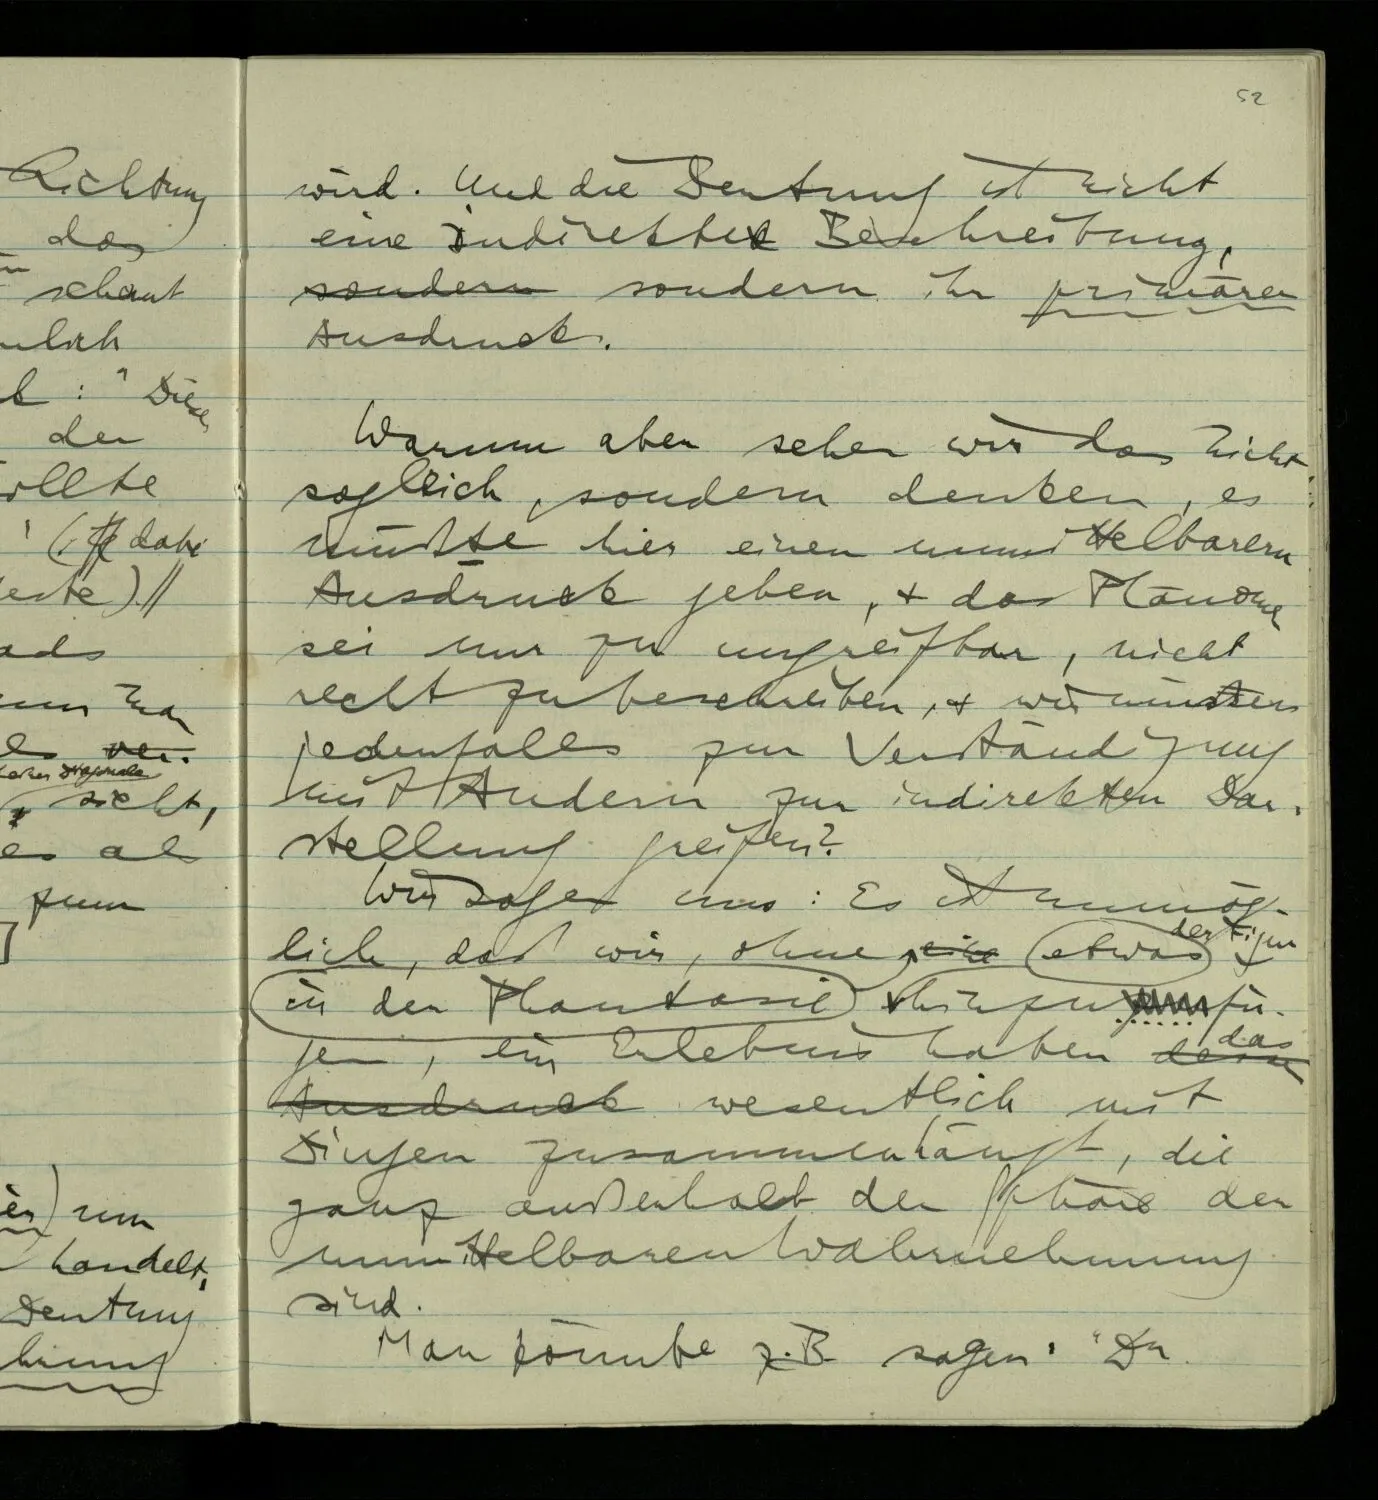 Richtung
das
schaut
nlich
t : " Diese
der
ollte
dabei
ecke) //
ads
man
es ver-
sieht,
es als
zum
]
ier) um
handelt,
Deutung
bung
52
wird. Und die Deutung ist nicht
eine indirekte Beschreibung,
sondern sondern ihr primärer
Ausdruck.
Warum aber sehen wir das nicht
sogleich, sondern denken, es
müßte hier einen unmittelbarern
Ausdruck geben, + das Phänomen
sei nur zu ungreifbar, nicht
recht zu beschreiben, + wir müßten
jedenfalls zur Verständigung
mit Andern zur indirekten Dar-
stellung greifen?
Wir sagen uns: Es ist unmög-
lich, daß wir, ohne eine etwas der Figur
in der Phantasie hinzuzufü-
gen, ein Erlebnis haben dessen das
Ausdruck wesentlich mit
Dingen zusammenhängt, die
ganz außerhalb der Sphäre der
unmittelbaren Wahrnehmung
sind.
Man könnte z.B. sagen: "Du